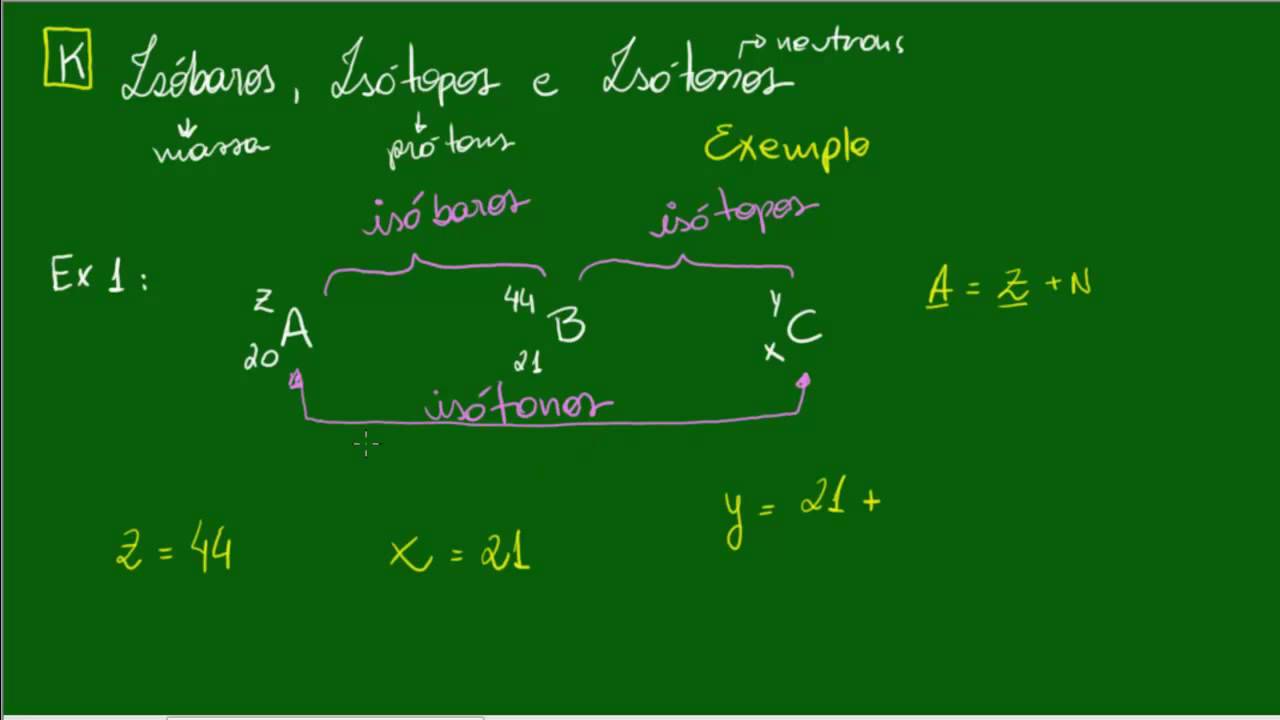 K Isóbaros, Isótopos e Isótonos → neutrons
↓ massa ↓ prótons Exemplo
isóbaros isótopos
Ex 1:
Z A 20 44 B 21 y C x A = Z + N
isótonos
y = 21 +
Z = 44 x = 21